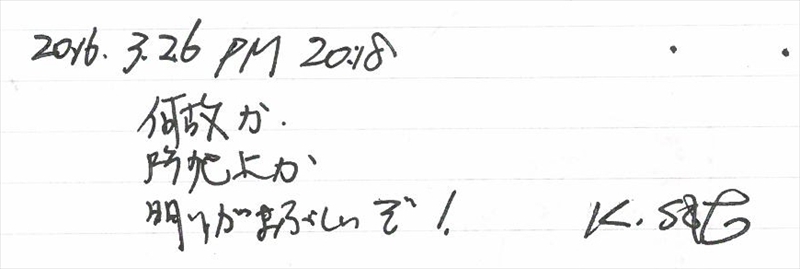 2016. 3.26 PM 20:18
何故か.
防犯上か
明りがまぶしいぞ!
K.